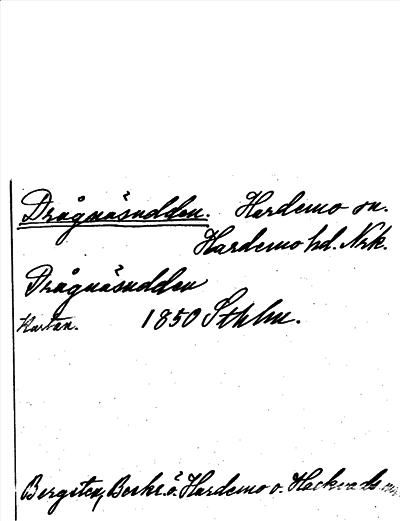 Drågnäsudden. Hardemo sn.
Hardemo hd. Nrk.
Drågnäsudden
Kartan. 1850 Sthlm.
Bergsten, Beskr. ö. Hardemo o. Hackvads